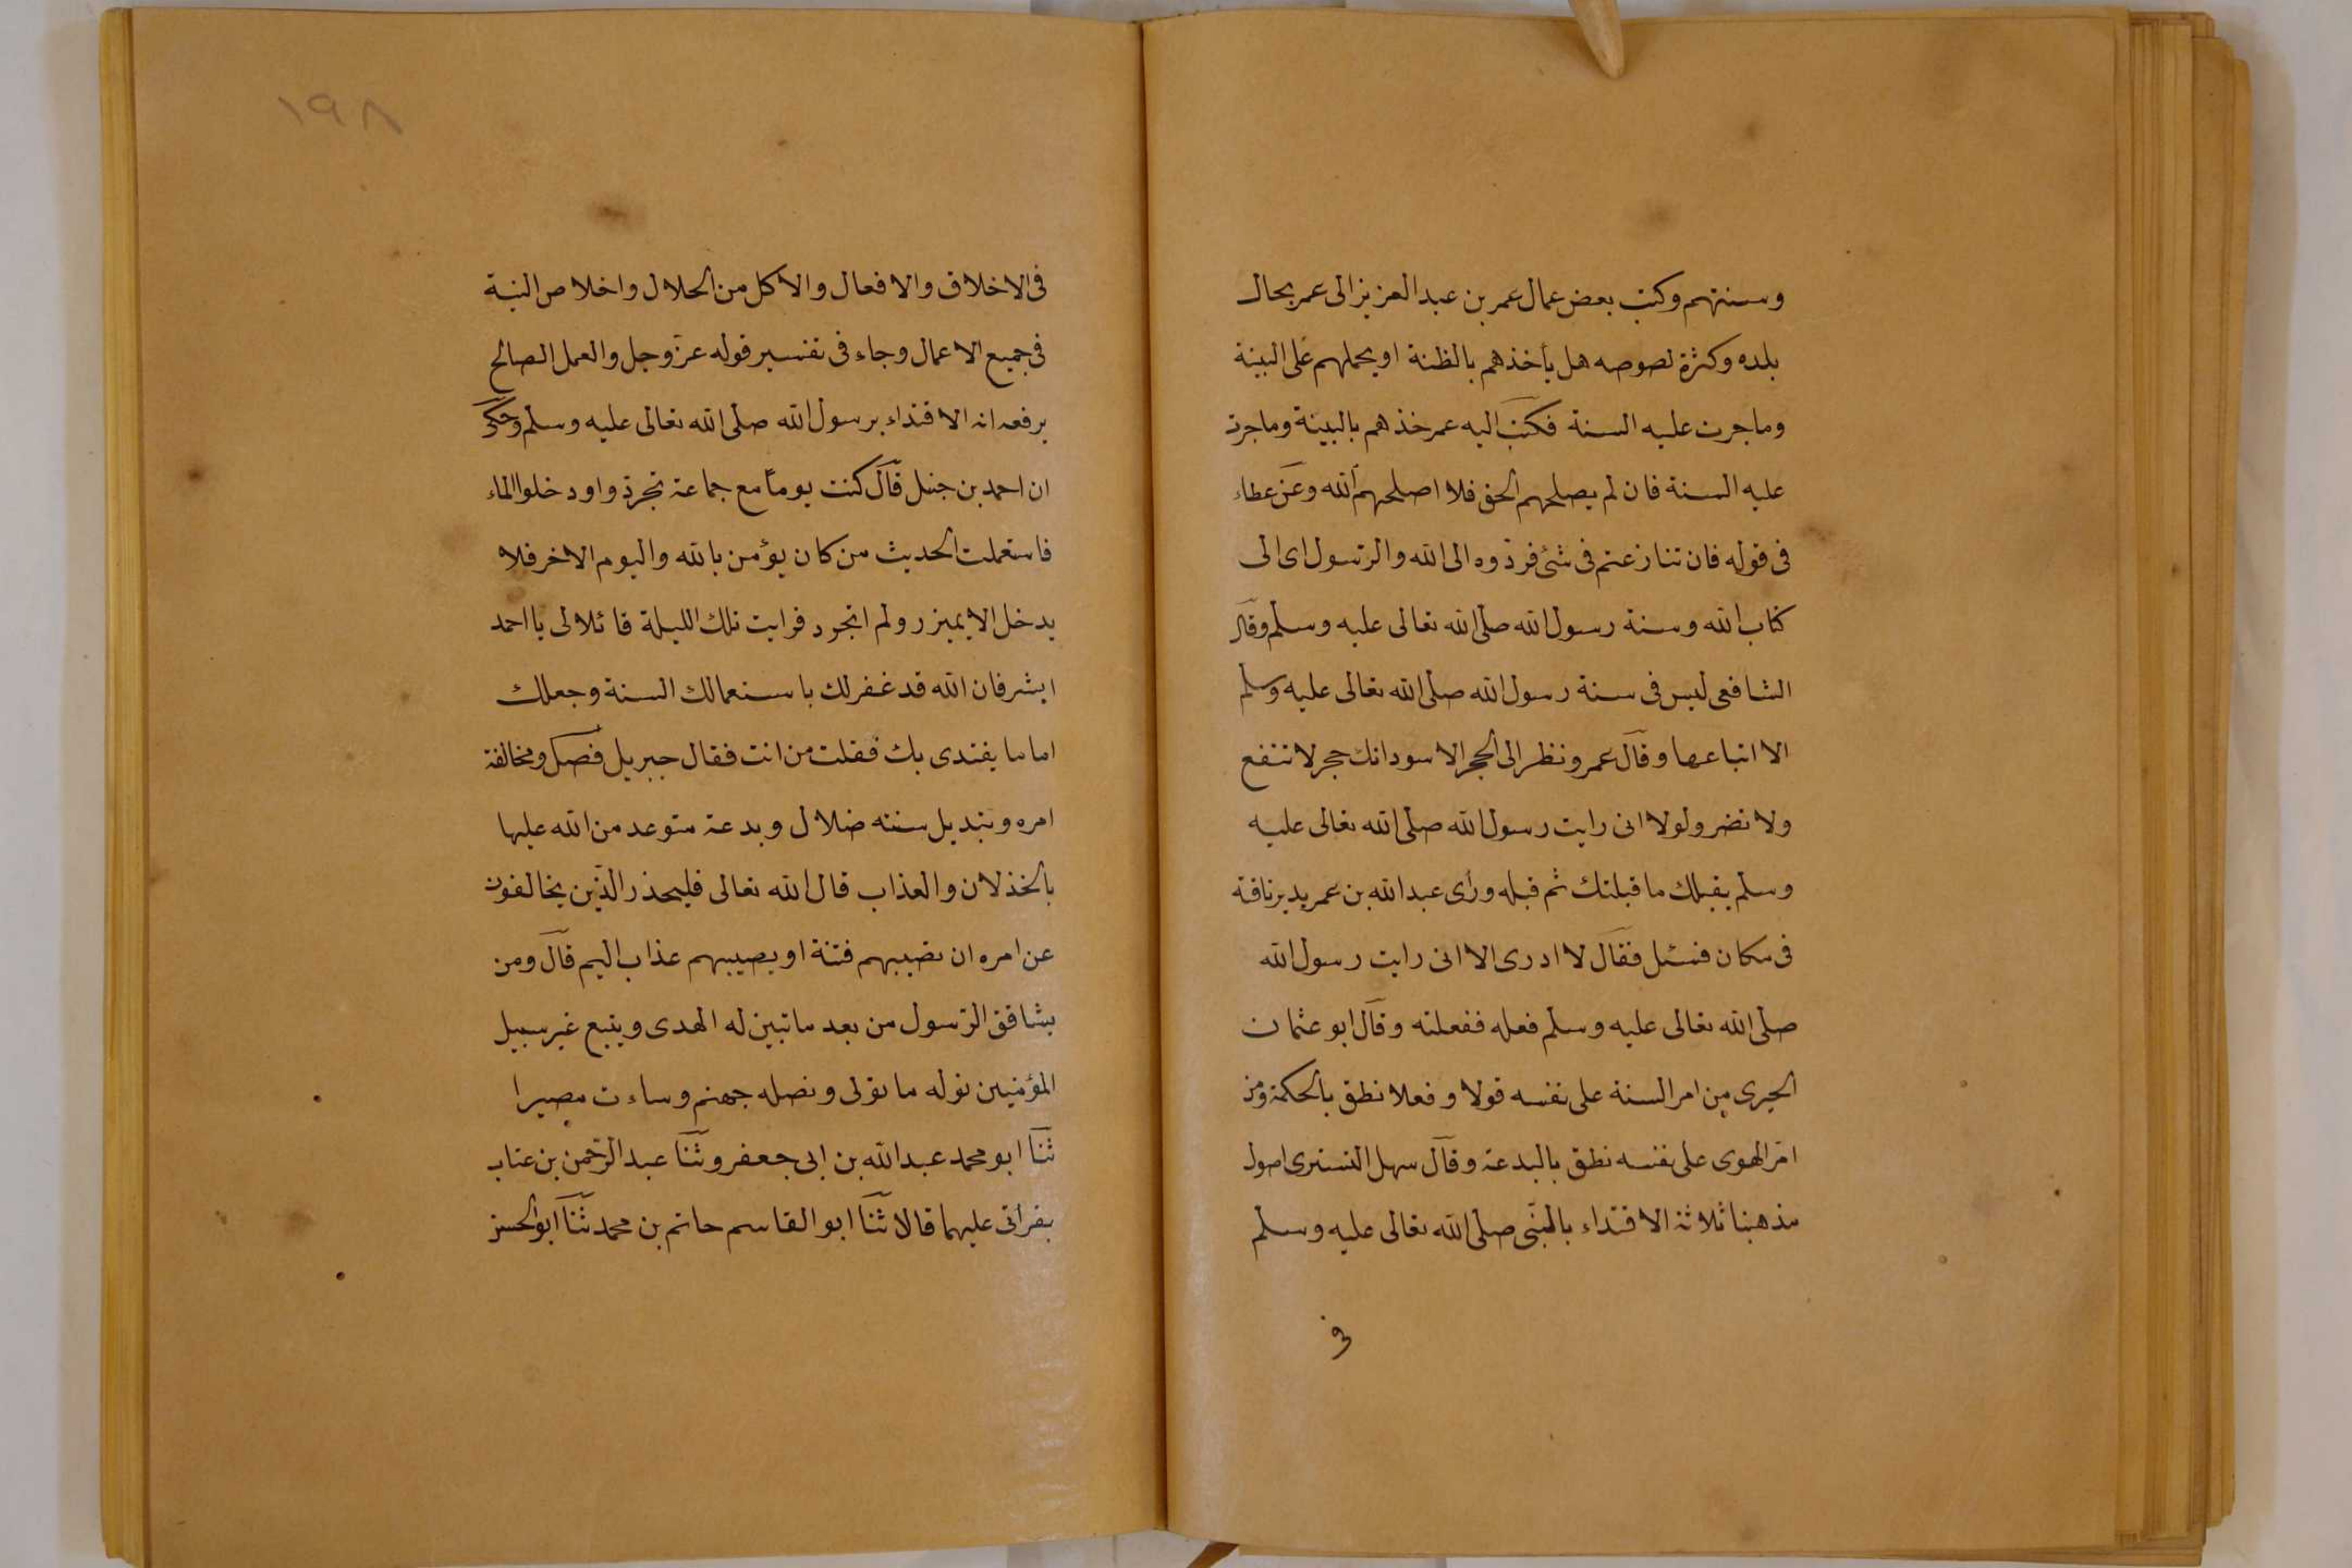 وسنتهم وكتب بعض عمال عمر بن عبد العزيز الى عمر بحال
بلده وكثرة لصوصه هل يأخذهم بالظنة او يحملهم على البينة
وما جرت عليه السنة فكتب اليه عمر خذهم بالبينة وما جرت
عليه السنة فان لم يصلحهم الحق فلا اصلحهم الله وعن عطاء
فى قوله فان تنازعتم فى شئ فردوه الى الله والرسول اى الى
كتاب الله وسنة رسول الله صلى الله تعالى عليه وسلم وقال
الشافعى ليس فى سنة رسول الله صلى الله تعالى عليه وسلم
الا اتباعها وقال عمر ونظر الى الحجر الاسود انك حجر لا تنفع
ولا تضر ولولا انى رايت رسول الله صلى الله تعالى عليه
وسلم يقبلك ما قبلتك ثم قبله ورأى عبد الله بن عمر يدير ناقته
فى مكان فسئل فقال لا ادرى الا انى رايت رسول الله
صلى الله تعالى عليه وسلم فعله ففعلته وقال ابو عثمان
الحيرى من امر السنة على نفسه قولا وفعلا نطق بالحكمة ومن
امر الهوى على نفسه نطق بالبدعة وقال سهل التسترى اصول
مذهبنا ثلاثة الاقتداء بالنبى صلى الله تعالى عليه وسلم
فى
١٩٨
فى الاخلاق والافعال والاكل من الحلال واخلاص النية
فى جميع الاعمال وجاء فى تفسير قوله عز وجل والعمل الصالح
يرفعه انه الاقتداء برسول الله صلى الله تعالى عليه وسلم وحكى
ان احمد بن حنبل قال كنت يوماً مع جماعة تجردوا ودخلوا الماء
فاستعملت الحديث من كان يؤمن بالله واليوم الاخر فلا
يدخل الا بميزر ولم اتجرد فرايت تلك الليلة قائلا لى يا احمد
ابشر فان الله قد غفر لك باستعمالك السنة وجعلك
اماما يقتدى بك فقلت من انت فقال جبريل فصل ومخالفة
امره وتبديل سنته ضلال وبدعة متوعد من الله عليها
بالخذلان والعذاب قال الله تعالى فليحذر الذين يخالفون
عن امره ان تصيبهم فتنة او يصيبهم عذاب اليم قال ومن
يشاقق الرسول من بعد ما تبين له الهدى ويتبع غير سبيل
المؤمنين نوله ما تولى ونصله جهنم وساءت مصيرا
ثنا ابو محمد عبد الله بن ابى جعفر وثنا عبد الرحمن بن عتاب
بقراتى عليهما قالا ثنا ابو القاسم حاتم بن محمد ثنا ابو الحسن